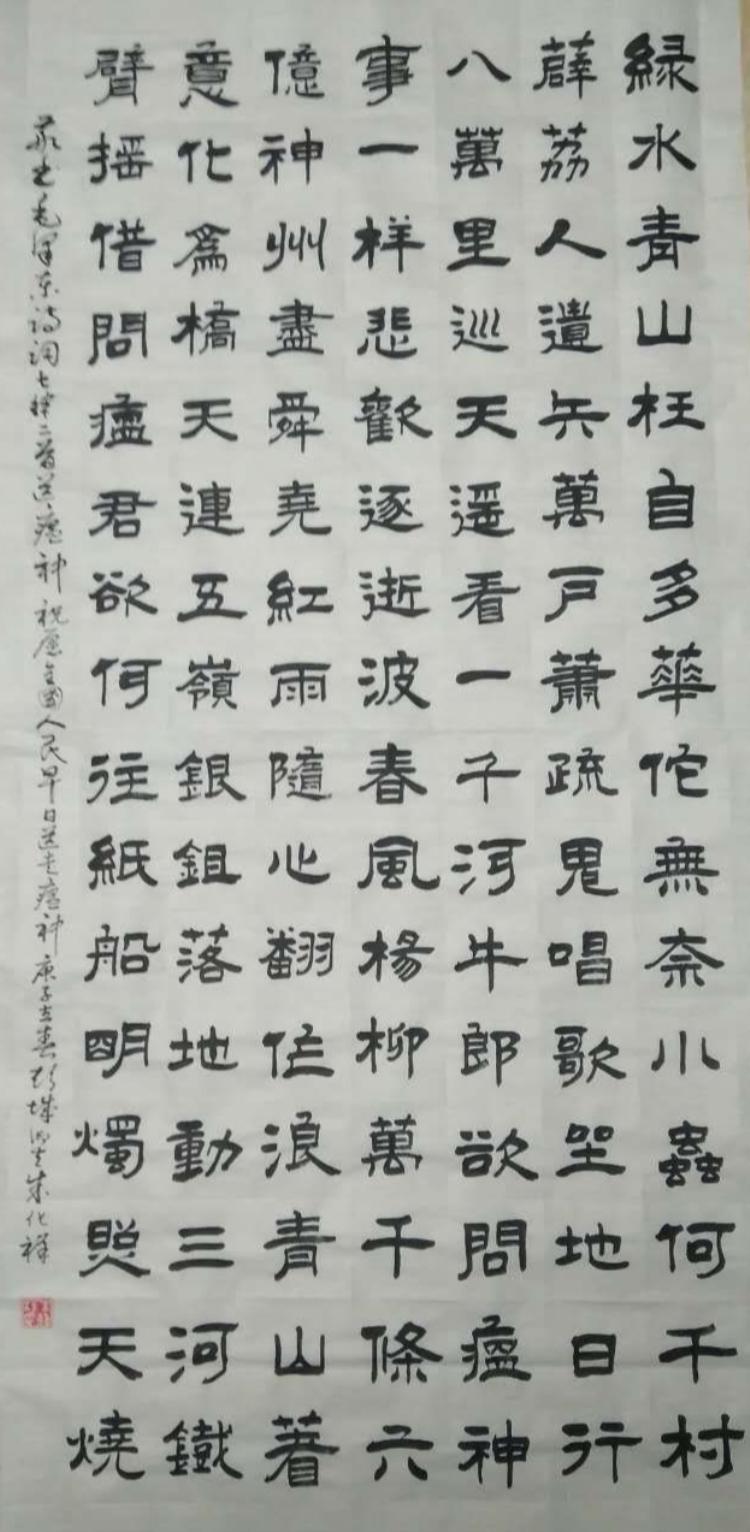 緑水青山枉自多華佗無奈小蟲何千村
薜荔人遺矢萬戸蕭疏鬼唱歌坐地日行
八萬里巡天遥看一千河牛郎欲問瘟神
事一样悲歡逐逝波春風楊柳萬千條六
億神州盡舜堯紅雨隨心翻作浪青山着
意化爲橋天連五嶺銀鉏落地動三河鐵
臂摇借問瘟君欲何往紙船明燭照天燒
书毛泽东诗词七律二首送瘟神 祝愿全国人民早日送走瘟神 庚子立春彭城朱化祥